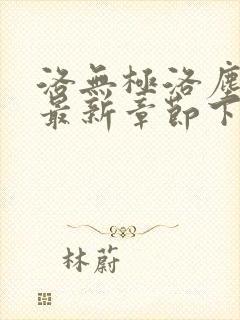 洛無極洛塵
最新章節下
林蔚